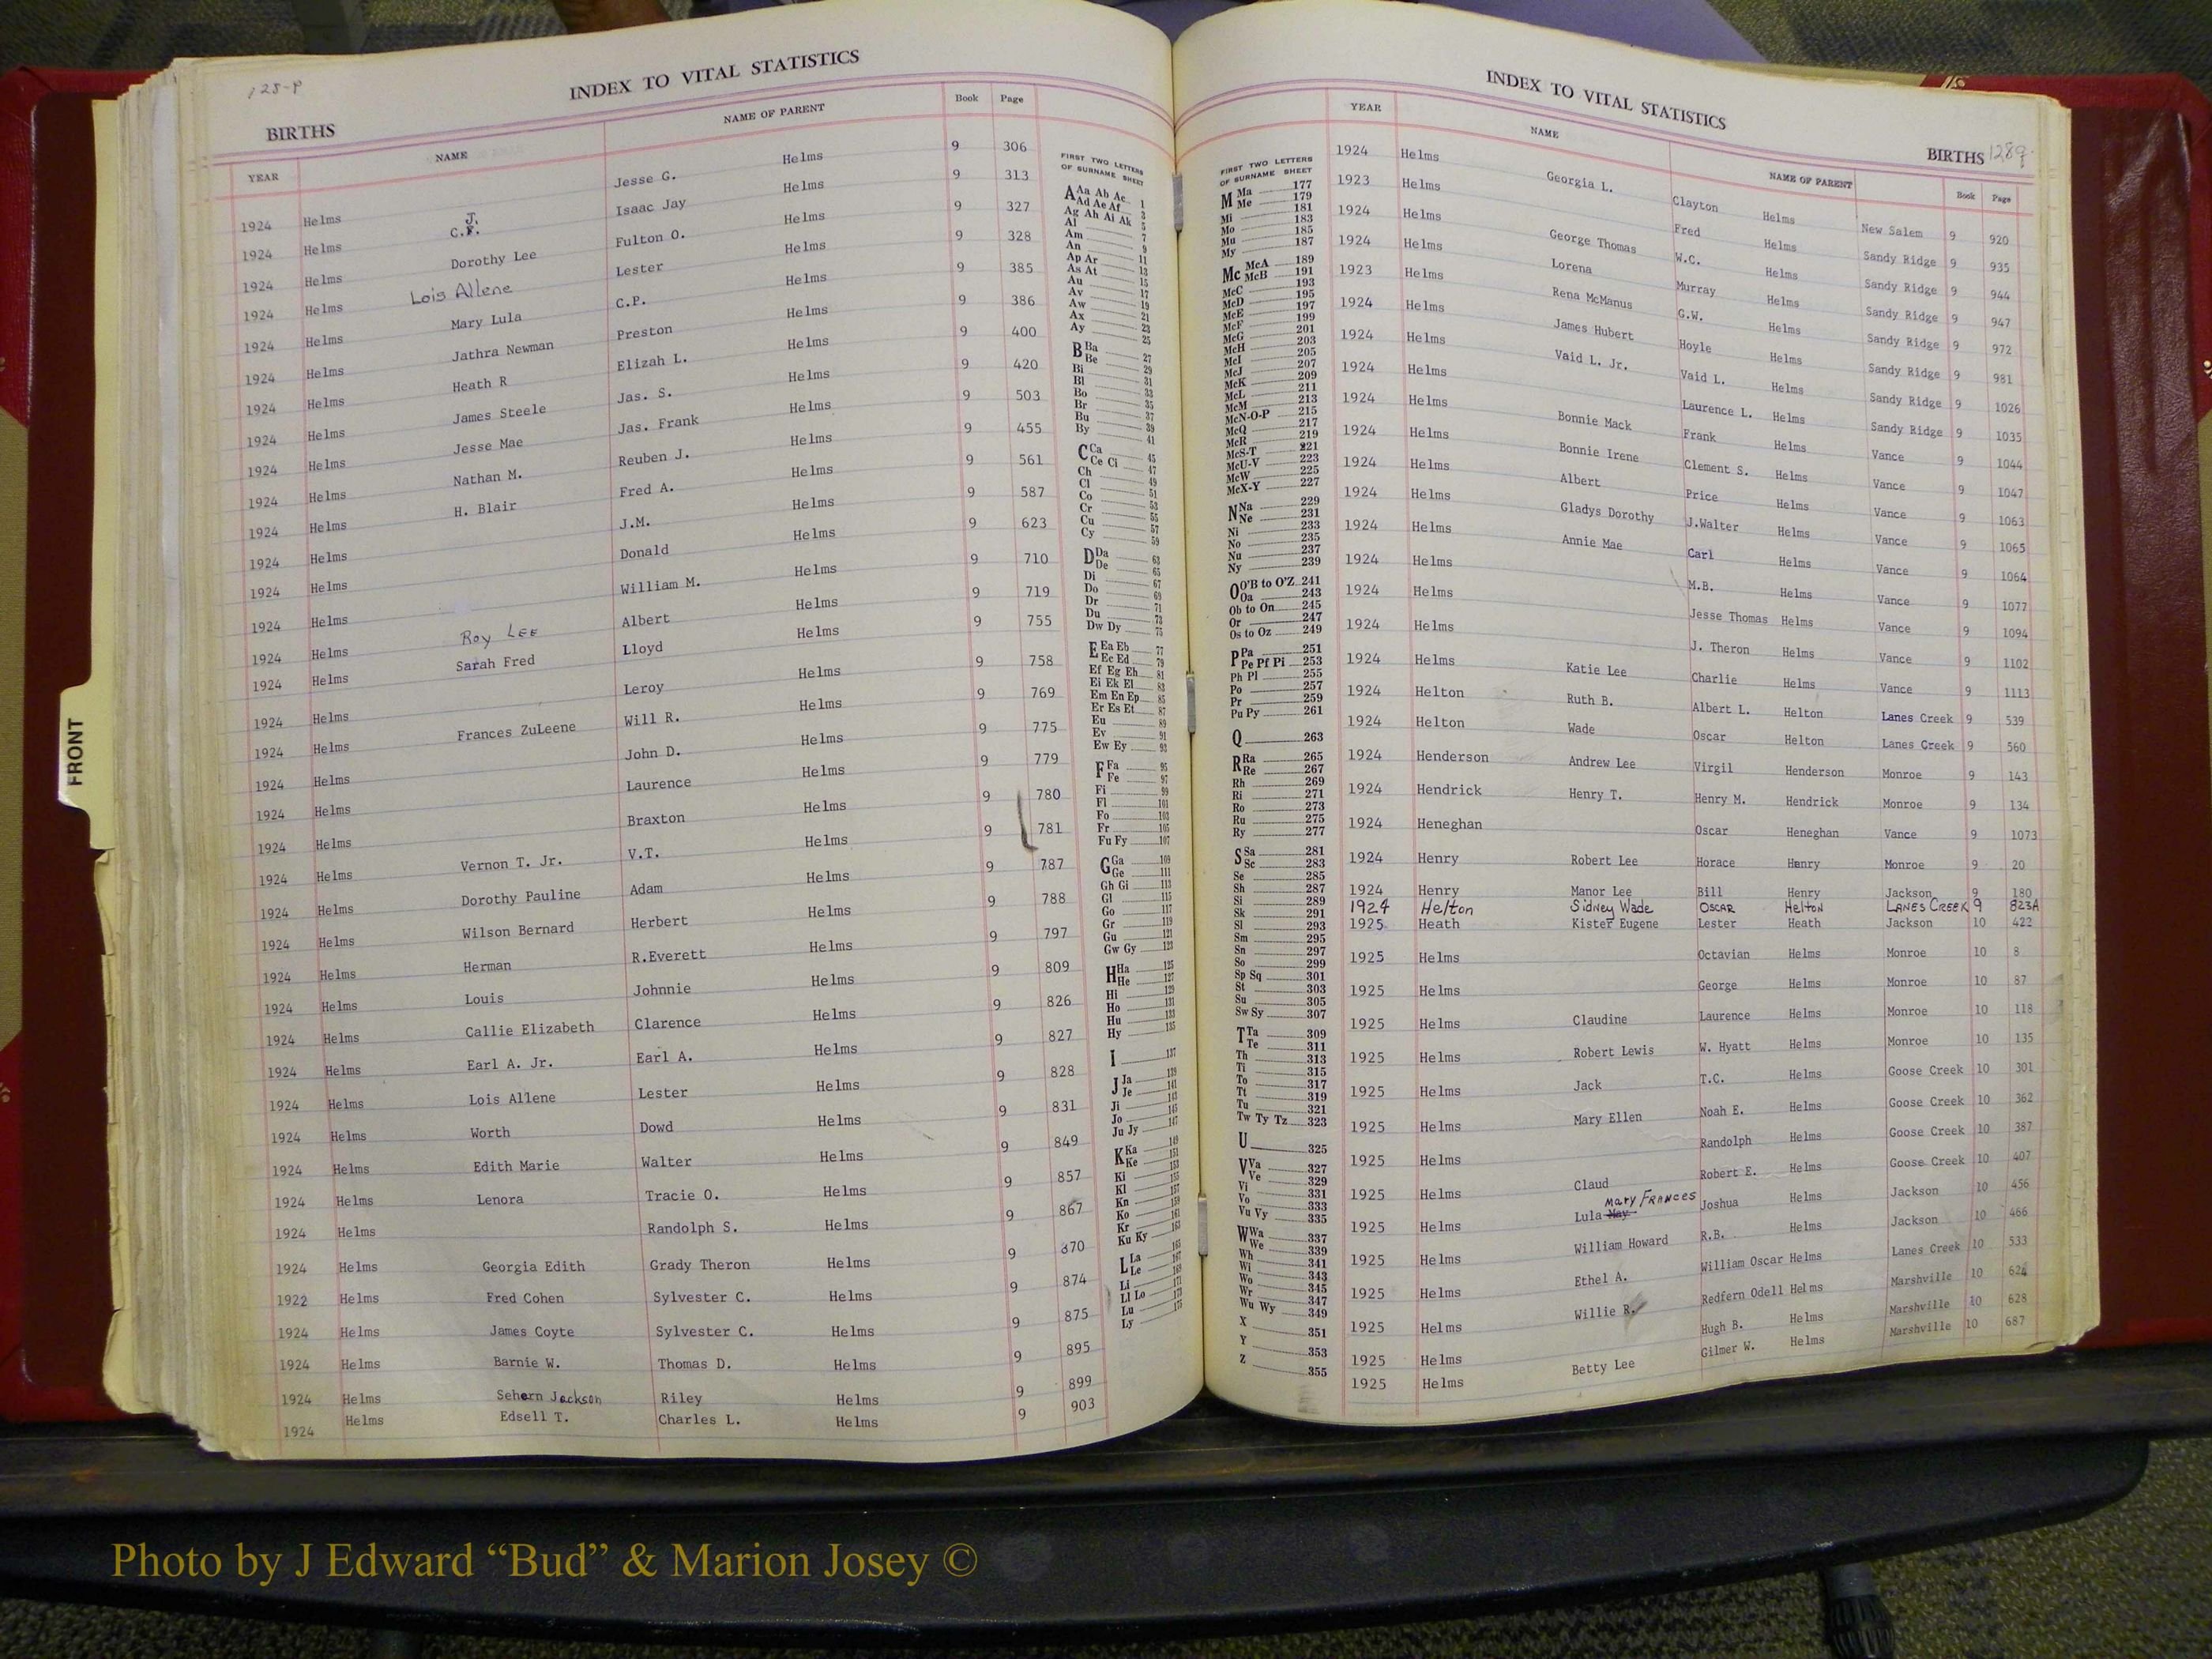 128-P
INDEX TO VITAL STATISTICS
BIRTHS
YEAR NAME NAME OF PARENT Book Page
1924 Helms Jesse G. Helms 9 306
1924 Helms C.J. Isaac Jay Helms 9 313
1924 Helms Dorothy Lee Fulton O. Helms 9 327
1924 Helms Lois Allene Lester Helms 9 328
1924 Helms Mary Lula C.P. Helms 9 385
1924 Helms Jathra Newman Preston Helms 9 386
1924 Helms Heath R Elizah L. Helms 9 400
1924 Helms James Steele Jas. S. Helms 9 420
1924 Helms Jesse Mae Jas. Frank Helms 9 503
1924 Helms Nathan M. Reuben J. Helms 9 455
1924 Helms H. Blair Fred A. Helms 9 561
1924 Helms J.M. Helms 9 587
1924 Helms Donald Helms 9 623
1924 Helms William M. Helms 9 710
1924 Helms Roy LEE Albert Helms 9 719
1924 Helms Sarah Fred Lloyd Helms 9 755
1924 Helms Leroy Helms 9 758
1924 Helms Frances ZuLeene Will R. Helms 9 769
1924 Helms John D. Helms 9 775
1924 Helms Laurence Helms 9 779
1924 Helms Braxton Helms 9 780
1924 Helms Vernon T. Jr. V.T. Helms 9 781
1924 Helms Dorothy Pauline Adam Helms 9 787
1924 Helms Wilson Bernard Herbert Helms 9 788
1924 Helms Herman R.Everett Helms 9 797
1924 Helms Louis Johnnie Helms 9 809
1924 Helms Callie Elizabeth Clarence Helms 9 826
1924 Helms Earl A. Jr. Earl A. Helms 9 827
1924 Helms Lois Allene Lester Helms 9 828
1924 Helms Worth Dowd Helms 9 831
1924 Helms Edith Marie Walter Helms 9 849
1924 Helms Lenora Tracie O. Helms 9 857
1924 Helms Randolph S. Helms 9 867
1924 Helms Georgia Edith Grady Theron Helms 9 870
1922 Helms Fred Cohen Sylvester C. Helms 9 874
1924 Helms James Coyte Sylvester C. Helms 9 875
1924 Helms Barnie W. Thomas D. Helms 9 895
1924 Helms Sehorn Jackson Riley Helms 9 899
1924 Helms Edsell T. Charles L. Helms 9 903
FIRST TWO LETTERS
OF SURNAME SHEET
A Aa Ab Ac 1
Ad Ae Af 3
Ag Ah Ai Ak 5
Al 7
Am 9
An 11
Ap Ar 13
As At 15
Au 17
Av 19
Aw 21
Ax 23
Ay 25
B Ba 27
Be 29
Bi 31
Bl 33
Bo 35
Br 37
Bu 39
By 41
C Ca 45
Ce Ci 47
Ch 49
Cl 51
Co 53
Cr 55
Cu 57
Cy 59
D Da 63
De 65
Di 67
Do 69
Dr 71
Du 73
Dw Dy 75
E Ea Eb 77
Ec Ed 79
Ef Eg Eh 81
Ei Ek El 83
Em En Ep 85
Er Es Et 87
Eu 89
Ev 91
Ew Ey 93
F Fa 95
Fe 97
Fi 99
Fl 101
Fo 103
Fr 105
Fu Fy 107
G Ga 109
Ge 111
Gh Gi 113
Gl 115
Go 117
Gr 119
Gu 121
Gw Gy 123
H Ha 125
He 127
Hi 129
Ho 131
Hu 133
Hy 135
I 137
J Ja 139
Je 141
Ji 143
Jo 145
Ju Jy 147
K Ka 149
Ke 151
Ki 153
Kl 155
Kn 157
Ko 159
Kr 161
Ku Ky 163
L La 165
Le 167
Li 169
Ll Lo 171
Lu 173
Ly 175
FIRST TWO LETTERS
OF SURNAME SHEET
M Ma 177
Me 179
Mi 181
Mo 183
Mu 185
My 187
Mc McA 189
McB 191
McC 193
McD 195
McE 197
McF 199
McG 201
McH 203
McI 205
McJ 207
McK 209
McL 211
McM 213
McN-O-P 215
McQ 217
McR 219
McS-T 221
McU-V 223
McW 225
McX-Y 227
N Na 229
Ne 231
Ni 233
No 235
Nu 237
Ny 239
O O'B to O'Z 241
Oa 243
Ob to On 245
Or 247
Os to Oz 249
P Pa 251
Pe Pf Pi 253
Ph Pl 255
Po 257
Pr 259
Pu Py 261
Q 263
R Ra 265
Re 267
Rh 269
Ri 271
Ro 273
Ru 275
Ry 277
S Sa 281
Sc 283
Se 285
Sh 287
Si 289
Sk 291
Sl 293
Sm 295
Sn 297
So 299
Sp Sq 301
St 303
Su 305
Sw Sy 307
T Ta 309
Te 311
Th 313
Ti 315
To 317
Tt 319
Tu 321
Tw Ty Tz 323
U 325
V Va 327
Ve 329
Vi 331
Vo 333
Vu Vy 335
W Wa 337
We 339
Wh 341
Wi 343
Wo 345
Wr 347
Wu Wy 349
X 351
Y 353
Z 355
INDEX TO VITAL STATISTICS
BIRTHS 128q
YEAR NAME NAME OF PARENT Book Page
1924 Helms Georgia L. Clayton Helms New Salem 9 920
1923 Helms Fred Helms Sandy Ridge 9 935
1924 Helms George Thomas W.C. Helms Sandy Ridge 9 944
1924 Helms Lorena Murray Helms Sandy Ridge 9 947
1923 Helms Rena McManus G.W. Helms Sandy Ridge 9 972
1924 Helms James Hubert Hoyle Helms Sandy Ridge 9 981
1924 Helms Vaid L. Jr. Vaid L. Helms Sandy Ridge 9 1026
1924 Helms Laurence L. Helms Sandy Ridge 9 1035
1924 Helms Bonnie Mack Frank Helms Vance 9 1044
1924 Helms Bonnie Irene Clement S. Helms Vance 9 1047
1924 Helms Albert Price Helms Vance 9 1063
1924 Helms Gladys Dorothy J.Walter Helms Vance 9 1065
1924 Helms Annie Mae Carl Helms Vance 9 1064
1924 Helms M.B. Helms Vance 9 1077
1924 Helms Jesse Thomas Helms Vance 9 1094
1924 Helms J. Theron Helms Vance 9 1102
1924 Helms Katie Lee Charlie Helms Vance 9 1113
1924 Helton Ruth B. Albert L. Helton Lanes Creek 9 539
1924 Helton Wade Oscar Helton Lanes Creek 9 560
1924 Henderson Andrew Lee Virgil Henderson Monroe 9 143
1924 Hendrick Henry T. Henry M. Hendrick Monroe 9 134
1924 Heneghan Oscar Heneghan Vance 9 1073
1924 Henry Robert Lee Horace Henry Monroe 9 20
1924 Henry Manor Lee Bill Henry Jackson 9 180
1924 Helton Sidney Wade OSCAR HELTON LANES CREEK 9 823A
1925 Heath Kister Eugene Lester Heath Jackson 10 422
1925 Helms Octavian Helms Monroe 10 8
1925 Helms George Helms Monroe 10 87
1925 Helms Claudine Laurence Helms Monroe 10 118
1925 Helms Robert Lewis W. Hyatt Helms Monroe 10 135
1925 Helms Jack T.C. Helms Goose Creek 10 301
1925 Helms Mary Ellen Noah E. Helms Goose Creek 10 362
1925 Helms Randolph Helms Goose Creek 10 387
1925 Helms Claud Robert E. Helms Goose Creek 10 407
MARY FRANCES
1925 Helms Lula May Joshua Helms Jackson 10 456
1925 Helms William Howard R.B. Helms Jackson 10 466
1925 Helms Ethel A. William Oscar Helms Lanes Creek 10 533
1925 Helms Willie R. Redfern Odell Helms Marshville 10 624
1925 Helms Hugh B. Helms Marshville 10 628
1925 Helms Betty Lee Gilmer W. Helms Marshville 10 687
FRONT
Photo by J Edward “Bud” & Marion Josey ©